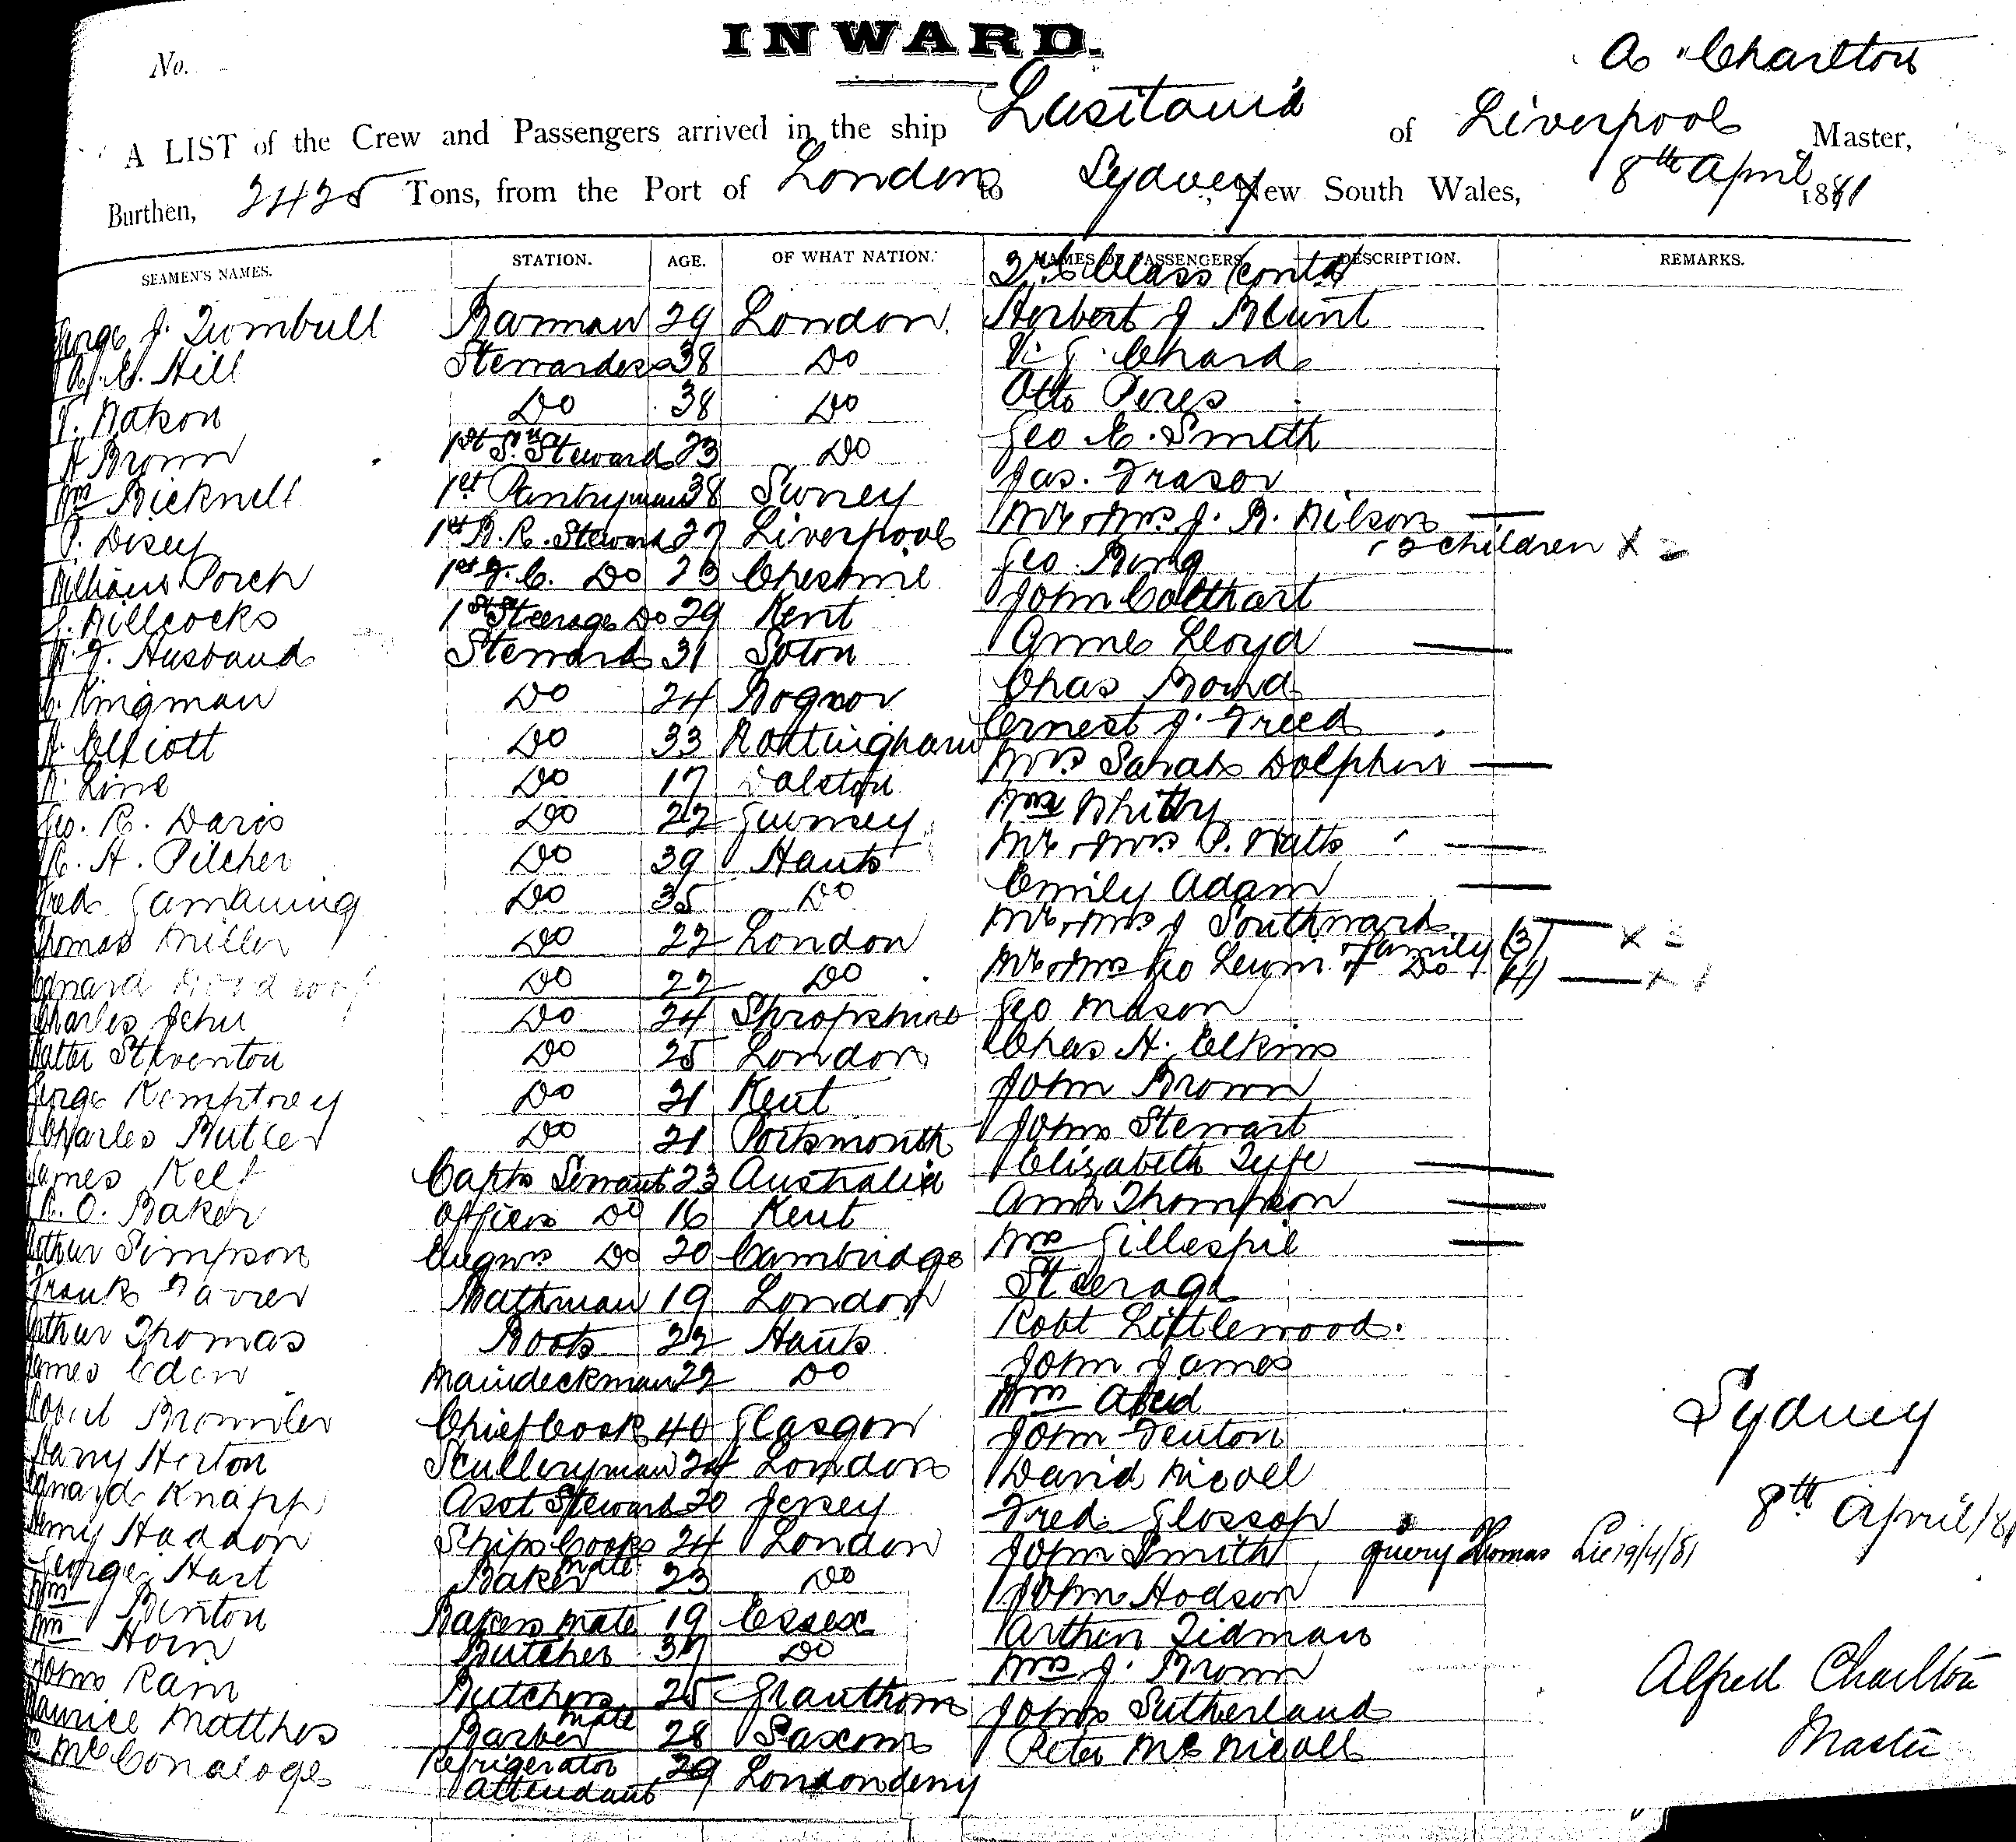 INWARD.
No.
A Charlton
A LIST of the Crew and Passengers arrived in the ship Lusitania of Liverpool Master,
Burthen, 2425 Tons, from the Port of London to Sydney, New South Wales, 8th April 1881
SEAMEN'S NAMES. STATION. AGE. OF WHAT NATION. NAMES OF PASSENGERS DESCRIPTION. REMARKS.
Class Contd
J. Turnbull Barman 29 London Herbert J Blunt
Hill Stewardess 38 Do Chard
Do 38 Do Otto Peres
A Brown 1st Sn Steward 23 Do Geo E. Smith
Wm Bicknell 1st Pantryman 38 Surrey Jas. Frasor
1st B.R. Steward 27 Liverpool Mr & Mrs J. R. Wilson
2 children X
Porch 1st Do 23 Cheshire Geo Ring
Willcocks 1st Steerage Do 29 Kent John Colthart
Husband Steward 31 Soton Anne Lloyd
Kingman Do 24 Bognor Chas Bond
Elliott Do 33 Nottingham Ernest J. Freed
Line Do 17 Mrs Sarah Dolphin
Geo. R. Davis Do 22 Guernsey Wm Whitty
A. Pilcher Do 39 Hants Mr & Mrs P. Watts
Fred Do 35 Do Emily Adam
Thomas Miller Do 22 London Mr & Mrs J Southward
Family (3) X
Do 22 Do Mr & Mrs Geo Do (4)
Charles Jehu Do 24 Shropshire Geo Mason
Walter Steventon Do 25 London Chas H. Elkins
George Kemptney Do 21 Kent John Brown
Charles Butler Do 21 Portsmouth John Stewart
James Kelf Capts Servant 23 Australia Elizabeth Fyfe
O. Baker Officers Do 16 Kent Ann Thompson
Arthur Simpson Engnrs Do 20 Cambridge Mrs Gillespie
Frank Bathman 19 London Steerage
Arthur Thomas Boots 22 Hants Robt Littlewood.
James Eden Maindeckman 22 Do John James
Robert Chief Cook 40 Glasgow Wm
Harry Horton Sculleryman London John Fenton
Edward Knapp Asst Steward 20 Jersey David Nicoll
Henry Haddon Ships Cooks mate 24 London Fred Glossop
George Hart Baker 23 Do John Smith query Thomas 19/4/81
Wm Benton Bakers mate 19 Essex John Hodson
Wm Horn Butcher Do Arthur Tidman
John Rain Butchers mate 25 Grantham Mrs J. Brown
Maurice Matthes Barber 28 Saxony John Sutherland
McConaloge Refrigerator attendant 29 Londonderry Peter McNicoll
Sydney
8th April/81
Alfred Charlton
Master